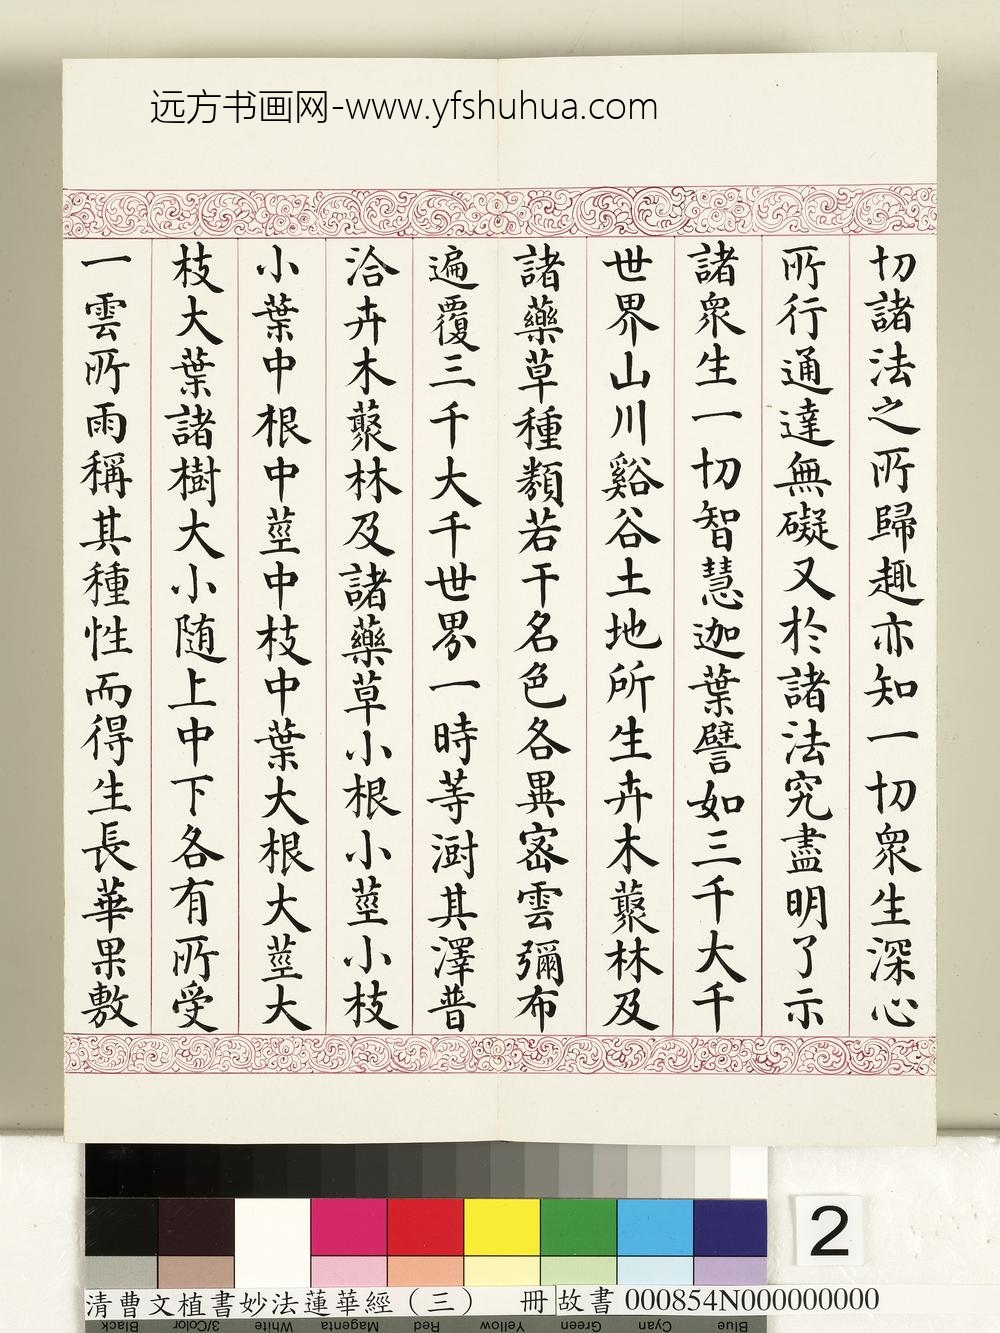 远方书画网-www.yfshuhua.com
切諸法之所歸趣亦知一切衆生深心
所行通達無礙又於諸法究盡明了示
諸衆生一切智慧迦葉譬如三千大千
世界山川谿谷土地所生卉木藂林及
諸藥草種類若干名色各異密雲彌布
遍覆三千大千世界一時等澍其澤普
洽卉木藂林及諸藥草小根小莖小枝
小葉中根中莖中枝中葉大根大莖大
枝大葉諸樹大小随上中下各有所受
一雲所雨稱其種性而得生長華果敷
2
清曹文植書妙法蓮華經（三） 冊 故書 000854N000000000
Black 3/Color White Magenta Red Yellow Green Cyan Blue